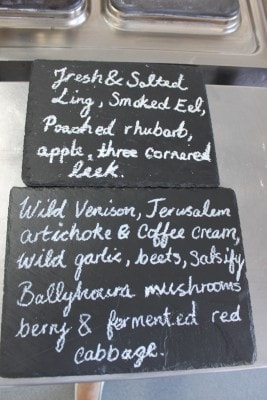 Fresh & Salted
Ling, Smoked Eel,
Poached rhubarb,
apple, three cornered
leek.
Wild Venison, Jerusalem
artichoke & Coffee cream,
wild garlic, beets, Salsify
Ballyhoura mushrooms
berry & fermented red
cabbage.